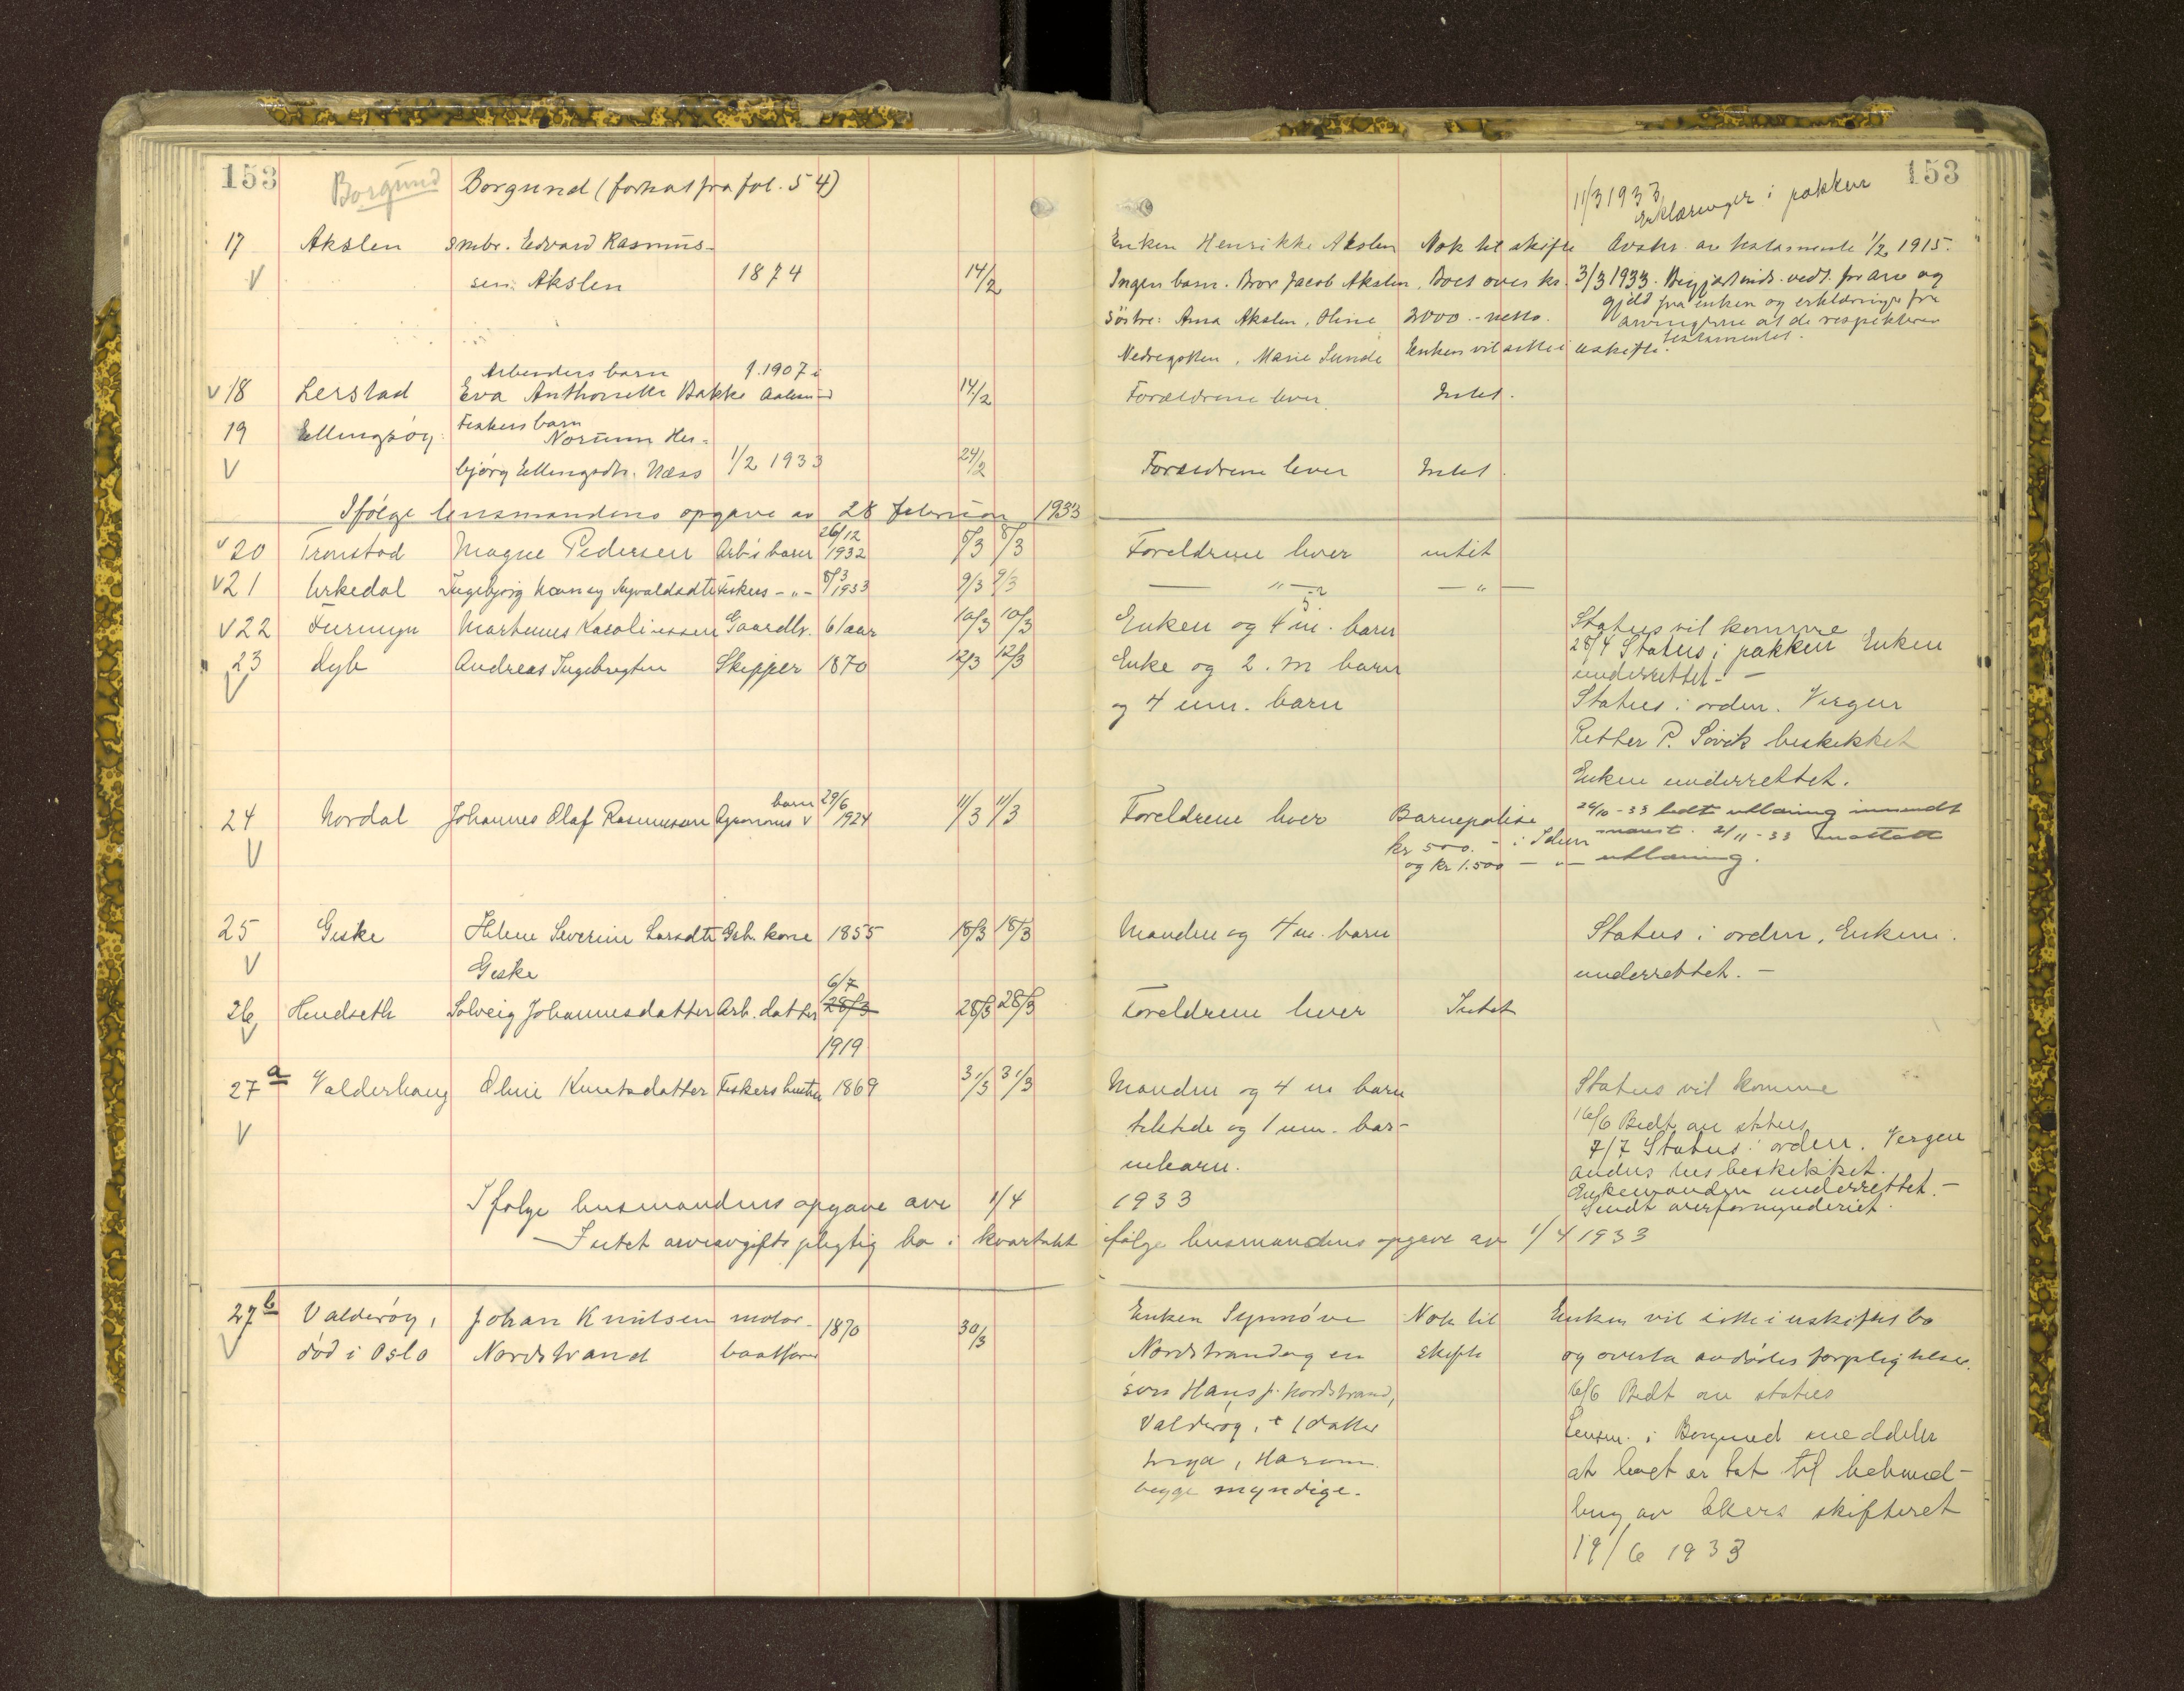 153
Borgund
Borgund (forts at fra fol. 54)
153
11/3 1933
Erklæringer i pakken
17 Akslen Smbr. Edvard Rasmus-
sen Akslen 1874 14/2
Enken Henrikke Akslen Nok til skifte Avskr. av testamente 1/2 1915.
Ingen barn. Bror Jacob Akslen, Boet over kr. 3/3 1933. Begjært vedt. for arv og
gjeld fra enken og erklæringer fra
Søstre: Anna Akslen, Oline 2000.- netto. arvingerne at de respekterer
testamentet.
Nedregotten, Marie Sunde Enken vil sitte i uskifte.
Arbeiders barn f. 1907 i
V 18 Lerstad Eva Anthonette Bakke Aalesund 14/2 Forældrene lever. Intet.
19 Ellingsøy. Fiskers barn
Norunn Her-
V bjørg Ellingsdtr. Næss 1/2 1933 24/2 Forældrene lever Intet.
Ifølge lensmandens opgave av 28 februar 1933
V 20 Tronstad Magne Pedersen Arb's barn 26/12 1932 8/3 8/3 Foreldrene lever intet
V 21 Urkedal Ingebjørg Nancy Sigvaldsdtr Fiskers -"- 8/3 1933 9/3 9/3 — " — — " —
V 22 Furmyr Martinus Karoliussen Gaardbr. 61 aar 10/3 10/3 Enken og 4 m. barn
5
Status vil komme
28/4 Status i pakken Enken
underrettet. -
23 Dyb Andreas Ingebrigtsen Skipper 1870 12/3 12/3 Enke og 2. m barn
V og 4 um. barn
Status i orden. Verger
Petter P. Søvik beskikket
Enken underrettet.
24 Nordal Johannes Olaf Rasmussen Agronoms barn 29/6 1924 11/3 11/3 Foreldrene lever Barnepolise
V kr 500. - i Idun
og kr 1.500 — " —
26/10 - 33 bedt utlaaning innsendt
2/11 - 33 mottatt
utlaaning.
25 Giske Helene Severine Larsdtr Grb. kone 1855 18/3 18/3 Manden og 4 m. barn
V Giske
Status i orden, Enkem.
underrettet. -
26 Hendseth Solveig Johannesdatter Arb. datter 6/7 28/3 28/3 28/3 Foreldrene lever Intet
V 1919
27 a Valderhaug Oline Knutsdatter Fiskers hustru 1869 31/3 31/3 Manden og 4 m barn
V tilstede og 1 um. bar-
nebarn.
Status vil komme
16/6 Bedt om status
7/7 Status i orden. Vergen
beskikket.
Enkemanden underrettet. -
Sendt overformynderiet.
Ifølge lensmandens opgave av 1/4 1933
- Intet arveavgiftspligtig bo i kvartalet ifølge lensmandens opgave av 1/4 1933
27 b Valderøy, Johan Knutsen motor- 1870 30/3 Enken Synnøve Nok til Enken vil sitte i uskiftet bo
V død i Oslo Nordstrand baatfører Nordstrand og en skifte og overta avdødes forpligtelser.
søn Hans J. Nordstrand,
Valderøy, + 1 datter
Haram
begge myndige.
16/6 Bedt om status
Lensm. i Borgund meddeler
at boet er tat til behand-
ling av Akers skifteret
19/6 1933